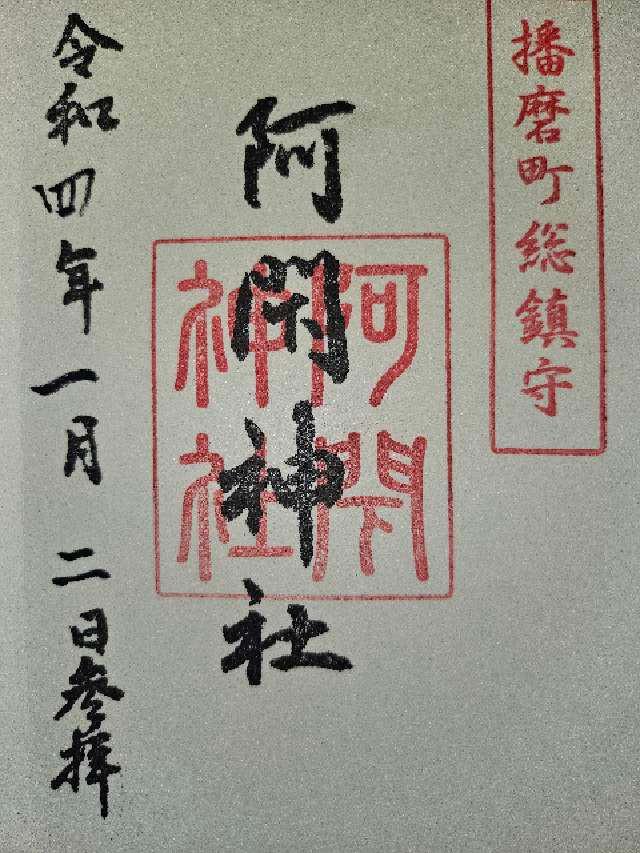 播磨町総鎮守
阿閇神社
阿閇神社
令和四年一月二日参拝